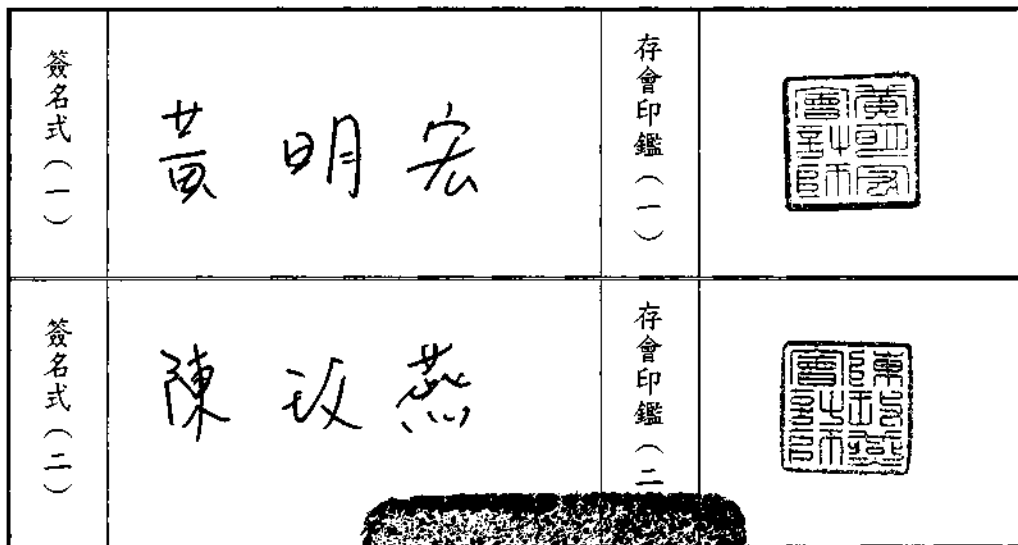 簽名式（一）
黃明宏
存會印鑑（一）
黃明宏會計師
簽名式（二）
陳玫燕
存會印鑑（二
陳玫燕會計師